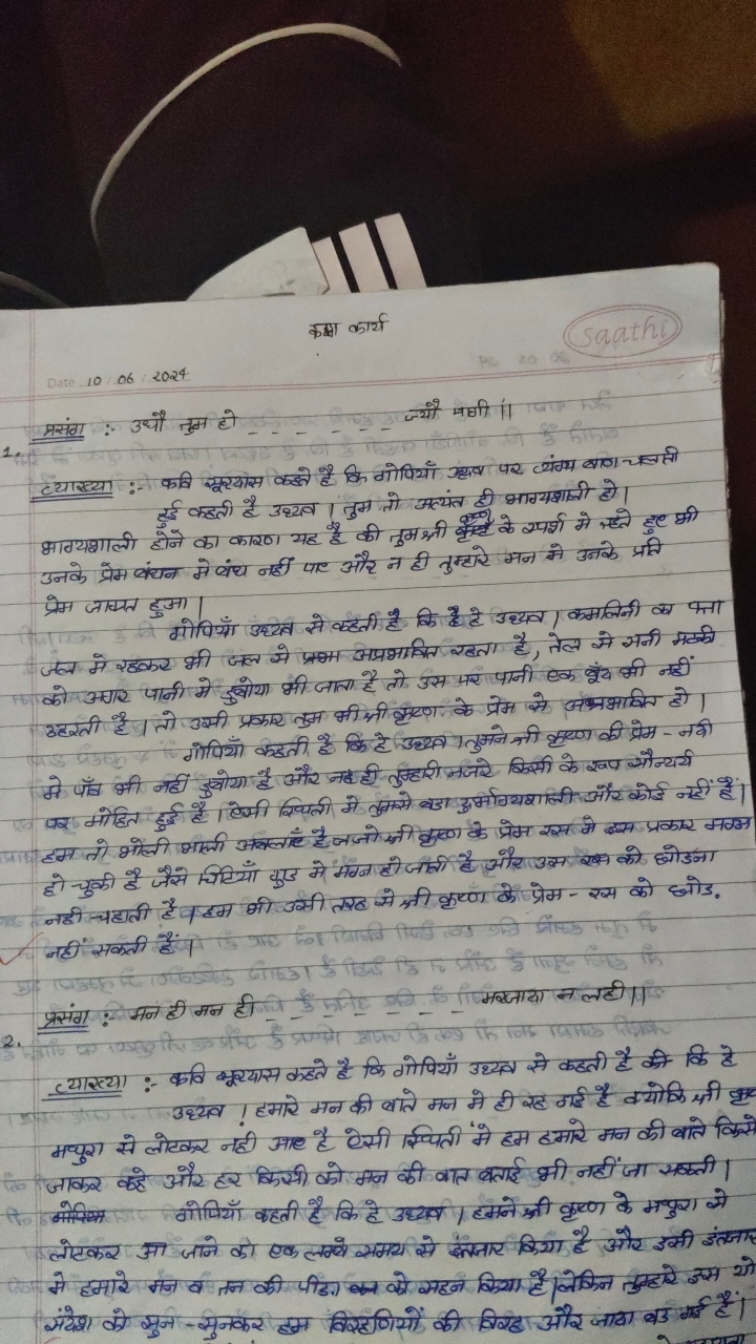 कक्षा कार्य
saathi
Date 10 / 06 / 2024
1. प्रसंग :- उधौ तुम हो _ _ _ _ _ _ _ ज्यौं पागी ||
व्याख्या :- कवि सूरदास कहते है कि गोपियाँ उद्धव पर व्यंग्य बाण चलाती
हुई कहती है उध्धव । तुम तो अत्यंत ही भाग्यशाली हो ।
भाग्यशाली होने का कारण यह है की तुम श्री कृष्ण के स्पर्श मे रहते हुए भी
उनके प्रेम बंधन मे बंध नहीं पाए और न ही तुम्हारे मन मे उनके प्रति
प्रेम जाग्रत हुआ |
गोपियाँ उध्धव से कहती है कि है हे उध्धव । कमलिनी का पत्ता
जल मे रहकर भी जल से अप्रभावित रहता है, तेल से सनी मटकी
को अगर पानी मे डुबोया भी जाता है तो उस पर पानी एक बूँद भी नहीं
ठहरती है । तो उसी प्रकार तुम भी श्री कृष्ण के प्रेम से अप्रभावित हो |
गोपियाँ कहती है कि हे उध्धव । तुमने श्री कृष्ण की प्रेम - नदी
मे पाँव भी नहीं डुबोया है और न ही तुम्हारी नजरे किसी के रूप सौन्दर्य
पर मोहित हुई है । ऐसी स्थिती मे तुमसे बडा दुर्भाग्यशाली और कोई नहीं है|
हम तो भोली भाली अबलाएँ है जो श्री कृष्ण के प्रेम रस मे इस प्रकार मग्न
हो चुकी है जैसे चिटियाँ गुड मे मग्न हो जाती है और उस रस को छोडना
नही चहाती है । हम भी उसी तरह से श्री कृष्ण के प्रेम - रस को छोड.
नहीं सकती हैं |
2. प्रसंग : मन ही मन ही _ _ _ _ _ _ मरजादा न लही ||
व्याख्या :- कवि सूरदास कहते है कि गोपियाँ उध्धव से कहती है की कि हे
उध्धव ! हमारे मन की बाते मन मे ही रह गई है क्योकि श्री कृष्ण
मथुरा से लोटकर नही आए है ऐसी स्थिती मे हम हमारे मन की बाते किसे
जाकर कहे और हर किसी को मन की बात बताई भी नहीं जा सकती |
गोपियाँ कहती है कि हे उध्धव । हमने श्री कृष्ण के मथुरा से
लोटकर आ जाने का एक लम्बे समय से इंतजार किया है और इसी इंतजार
मे हमारे मन व तन की पीडा को सहन किया है । लेकिन तुम्हारे इस यो
संदेश को सुन - सुनकर हम विरहणियों की विरह और ज्यादा बड गई है |